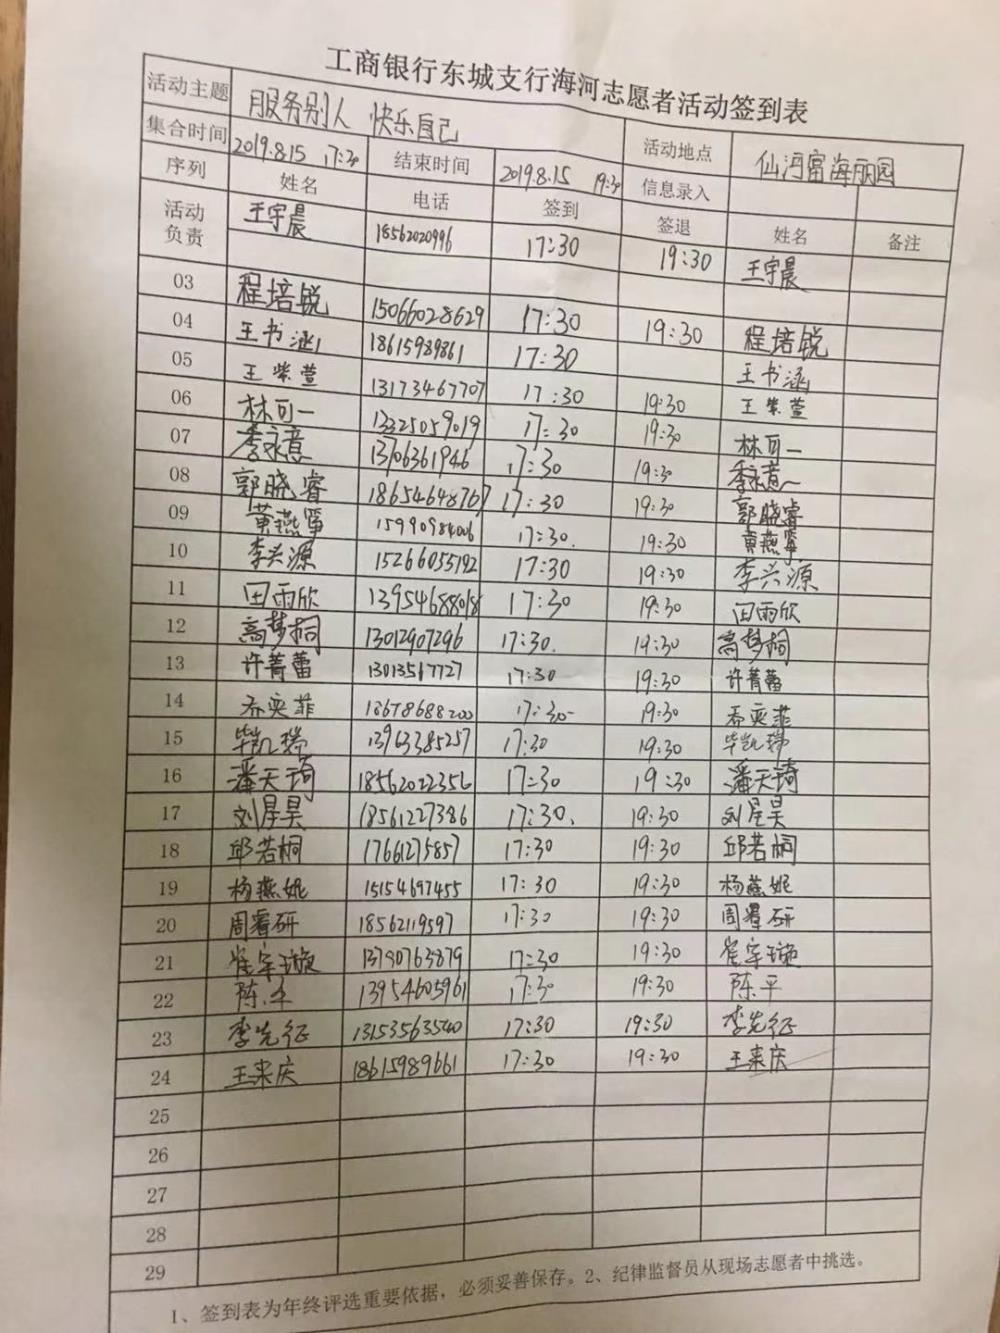 工商银行东城支行海河志愿者活动签到表
活动主题 服务别人 快乐自己 活动地点 仙河富海丽园
集合时间 2019.8.15 17:30 结束时间 2019.8.15 19:30 信息录入
序列 姓名 电话 签到 签退 姓名 备注
活动负责 王宇晨 18562020996 17:30 19:30 王宇晨
03 程培锐 15066028629 17:30 19:30 程培锐
04 王书涵 18615989861 17:30 王书涵
05 王紫萱 13173467707 17:30 19:30 王紫萱
06 林可一 13325059019 17:30 19:30 林可一
07 李永意 13706361946 17:30 19:30 李永意
08 郭晓睿 18654648767 17:30 19:30 郭晓睿
09 黄燕 15990984006 17:30. 19:30 黄燕
10 李兴源 15266055192 17:30 19:30 李兴源
11 田雨欣 13954688018 17:30 19:30 田雨欣
12 高梦桐 13012907296 17:30. 19:30 高梦桐
13 许菁蕾 13013567727 17:30 19:30 许菁蕾
14 乔奕菲 18678688200 17:30 19:30 乔奕菲
15 毕凯瑞 13963385257 17:30 19:30 毕凯瑞
16 潘天琦 18562022356 17:30 19:30 潘天琦
17 刘星昊 18561227386 17:30. 19:30 刘星昊
18 邱若桐 17661275857 17:30 19:30 邱若桐
19 杨燕妮 15154697455 17:30 19:30 杨燕妮
20 周睿研 18562119597 17:30 19:30 周睿研
21 崔宇璇 13780763879 17:30 19:30 崔宇璇
22 陈平 13954605961 17:30 19:30 陈平
23 李先征 13153563540 17:30 19:30 李先征
24 王来庆 18615989661 17:30 19:30 王来庆
25
26
27
28
29
1、签到表为年终评选重要依据，必须妥善保存。2、纪律监督员从现场志愿者中挑选。